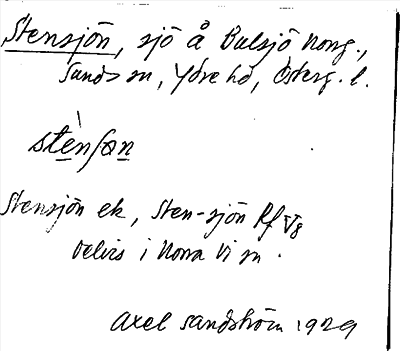 Stensjön, sjö å Bulsjö Norrg.,
Sunds sn, Ydre hd, Österg. l.
stènʃøn
Stensjön ek, Sten-sjön Rf V8
delvis i Norra Vi sn.
Axel Sandström 1929